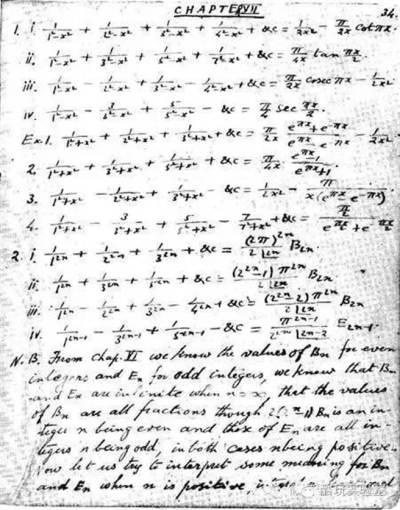 CHAPTER VII
34.
1. i. 1/(1²-x²) + 1/(2²-x²) + 1/(3²-x²) + 1/(4²-x²) + &c = 1/(2x²) - π/(2x) cot πx.
ii. 1/(1²-x²) + 1/(3²-x²) + 1/(5²-x²) + &c = π/(4x) tan πx/2.
iii. 1/(1²-x²) - 1/(2²-x²) + 1/(3²-x²) - 1/(4²-x²) + &c = π/(2x) cosec πx - 1/(2x²)
iv. 1/(1²-x²) - 3/(3²-x²) + 5/(5²-x²) - &c = π/4 sec πx/2.
Ex. 1. 1/(1²+x²) + 1/(2²+x²) + 1/(3²+x²) + &c = π/(2x) (e^πx + e^-πx)/(e^πx - e^-πx) - 1/(2x²)
2. 1/(1²+x²) + 1/(3²+x²) + 1/(5²+x²) + &c = π/(4x) (e^πx - 1)/(e^πx + 1).
3. 1/(1²+x²) - 1/(2²+x²) + 1/(3²+x²) - &c = 1/(2x²) - π/(x(e^πx - e^-πx)).
4. 1/(1²+x²) - 3/(3²+x²) + 5/(5²+x²) - 7/(7²+x²) + &c = (π/2)/(e^(πx/2) + e^(-πx/2))
2. i. 1/1^2n + 1/2^2n + 1/3^2n + &c = (2π)^2n/(2|2n) B2n.
ii. 1/1^2n + 1/3^2n + 1/5^2n + &c = (2^2n - 1)π^2n/(2|2n) B2n
iii. 1/1^2n - 1/2^2n + 1/3^2n - 1/4^2n + &c = (2^2n - 2)π^2n/(2|2n) B2n
iv. 1/1^2n-1 - 1/3^2n-1 + 1/5^2n-1 - &c = π^2n-1/(2^2n|2n-2) E2n-1.
N.B. From chap. VI we know the values of Bn for even
integers and En for odd integers, we know that Bn
and En are infinite when n = ∞, that the values
of Bn are all fractions though 2(2^n-1) Bn is an in-
teger n being even and those of En are all in-
tegers n being odd, in both cases n being positive.
Now let us try to interpret some meaning for Bn
and En when n is positive,